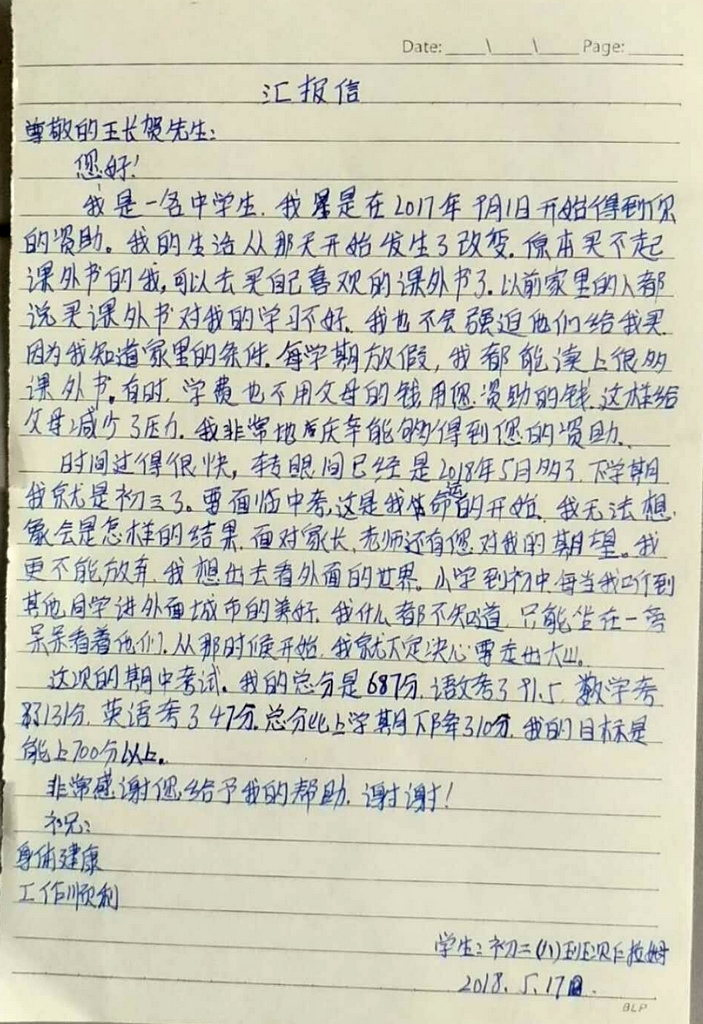 Date: ___\___\___ Page: ___
汇报信
尊敬的王长贺先生:
您好!
我是一名中学生.我是在2017年9月1日开始得到您
的资助。我的生活从那天开始发生了改变.原本买不起
课外书的我,可以去买自己喜欢的课外书了.以前家里的人都
说买课外书对我的学习不好.我也不会强迫他们给我买
因为我知道家里的条件.每学期放假,我都能读上很多
课外书.有时.学费也不用父母的钱.用您资助的钱.这样给
父母减少了压力.我非常地庆幸能够得到您的资助.
时间过得很快,转眼间已经是2018年5月多了.下学期
我就是初三了.要面临中考,这是我命运的开始.我无法想
象会是怎样的结果.面对家长,老师还有您对我的期望。我
更不能放弃.我想出去看外面的世界.小学到初中每当我听到
其他同学讲外面城市的美好.我什么都不知道.只能坐在一旁
呆呆看着他们.从那时候开始.我就下定决心要走出大山。
这次的期中考试。我的总分是687分.语文考了91.5.数学考
了131分.英语考了47分.总分比上学期下降了10分.我的目标是
能上700分以上。
非常感谢您给予我的帮助.谢谢!
祝:
身体健康
工作顺利
学生:初二(八)班次仁拉姆
2018.5.17日.
BLP